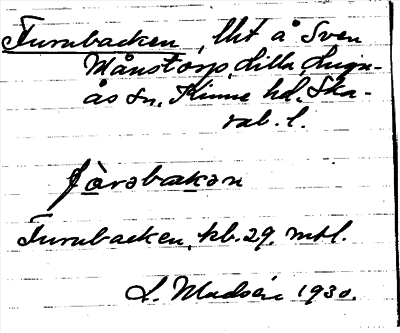 Furubacken, lht å Sven
Månstorp, Lilla, Lugn-
ås sn. Kinne hd. Ska-
rab. l.
Furubacken, kb. 29. mtl.
L. Madsén 1930.